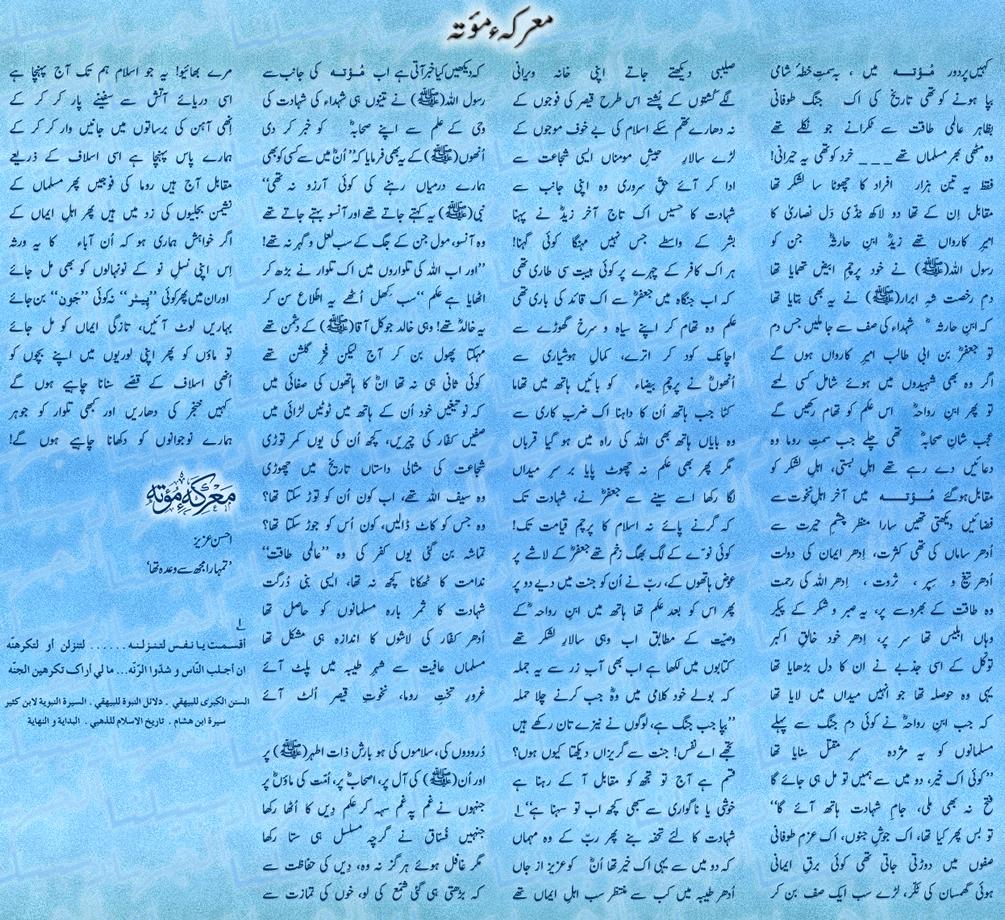 معرکہءمؤتہ
کہیں پر دور مُؤتہ میں ، بہ سمتِ خطہء شامی
بپا ہونے کو تھی تاریخ کی اک جنگ طوفانی
بظاہر عالمی طاقت سے ٹکرانے جو نکلے تھے
وہ مٹھی بھر مسلماں تھے ـــ خرد کو تھی یہ حیرانی!
فقط یہ تین ہزار افراد کا چھوٹا سا لشکر تھا
مقابل اِن کے تھا دو لاکھ ٹڈی دَل نصاریٰ کا
امیرِ کارواں تھے زیدؓ ابنِ حارثہؓ جن کو
رسول اللہ(ﷺ) نے خود پرچمِ ابیض تھمایا تھا
دمِ رخصت شہِ ابرار(ﷺ) نے یہ بھی بتایا تھا
کہ ابنِ حارثہؓ شہداء کی صف سے جا ملیں جس دم
تو جعفرؓ بن ابی طالب امیرِ کارواں ہوں گے
اگر وہ بھی شہیدوں میں ہوئے شامل کسی لمحے
تو پھر ابنِ رواحہؓ اس علم کو تھام رکھیں گے
عجب شانِ صحابہؓ تھی چلے جب سمتِ روما وہ
دعائیں دے رہے تھے اہلِ بستی، اہلِ لشکر کو
مقابل ہو گئے مُؤتہ میں آخر اہلِ نخوت سے
فضائیں دیکھتی تھیں سارا منظر چشمِ حیرت سے
اُدھر ساماں کی تھی کثرت، اِدھر ایمان کی دولت
اُدھر تیغ و سپر ، ثروت ، اِدھر اللہ کی رحمت
وہ طاقت کے بھروسے پر، یہ صبر و شکر کے پیکر
وہاں ابلیس تھا سر پر، اِدھر خود خالقِ اکبر
توکل کے اسی جذبے نے ان کا دل بڑھایا تھا
یہی وہ حوصلہ تھا جو اُنہیں میداں میں لایا تھا
کہ جب ابنِ رواحہؓ نے کوئی دم جنگ سے پہلے
مسلمانوں کو یہ مژدہ سرِ مقتل سنایا تھا
”کوئی اک خیر، دو میں سے ہمیں تو مل ہی جائے گا
فتح نہ بھی ملی، جامِ شہادت ہاتھ آئے گا“
تو بس پھر کیا تھا، اک جوشِ جنوں، اک عزمِ طوفانی
صفوں میں دوڑتی جاتی تھی کوئی برقِ ایمانی
ہوئی گھمسان کی ٹکر، لڑے سب ایک صف بن کر
صلیبی دیکھتے جاتے اپنی خانہ ویرانی
لگے کُشتوں کے پُشتے اس طرح قیصر کی فوجوں کے
نہ دھارے تھم سکے اسلام کی بے خوف موجوں کے
لڑے سالارِ جیشِ مومناں ایسی شجاعت سے
ادا کر آئے حقِ سروری وہ اپنی جانب سے
شہادت کا حسیں اک تاج آخر زیدؓ نے پہنا
بشر کے واسطے جس نہیں مہنگا کوئی گہنا!
ہر اک کافر کے چہرے پر کوئی ہیبت سی طاری تھی
کہ اب جنگاہ میں جعفرؓ سے اک قائد کی باری تھی
علم وہ تھام کر اپنے سیاہ و سرخ گھوڑے سے
اچانک کود کر اترے، کمالِ ہوشیاری سے
اُنھوںؓ نے پرچمِ بیضاء کو بائیں ہاتھ میں تھاما
کٹا جب ہاتھ اُن کا داہنا اک ضربِ کاری سے
وہ بایاں ہاتھ بھی اللہ کی راہ میں ہو گیا قرباں
مگر پھر بھی علم نہ چھوٹ پایا بر سرِ میداں
لگا رکھا اسے سینے سے جعفرؓ نے، شہادت تک
کہ گرنے پائے نہ اسلام کا پرچم قیامت تک!
کوئی نوّے کے لگ بھگ زخم تھے جعفرؓ کے لاشے پر
عوض ہاتھوں کے، ربّ نے اُن کو جنت میں دیے دو پر
پھر اس کو بعد علم تھا ہاتھ میں ابنِ رواحہؓ کے
وصیّت کے مطابق اب وہی سالارِ لشکر تھے
کتابوں میں لکھا ہے اب بھی آبِ زر سے یہ جملہ
کہ بولے خود کلامی میں وہؓ جب کرنے چلا حملہ
”بپا جب جنگ ہے، لوگوں نے نیزے تان رکھے ہیں
تجھے اے نفس! جنت سے گریزاں دیکھتا کیوں ہوں؟
قسم ہے آج تو تجھ کو مقابل آ کے رہنا ہے
خوشی یا ناگواری سے سبھی کچھ اب تو سہنا ہے“ ۱
شہادت کا لئے تحفہ بنے پھر ربّ کے وہ مہماں
کہ دو میں سے یہی اک خیر تھا اُنؓ کو عزیز از جاں
اُدھر طیبہ میں کب سے منتظر سب اہلِ ایماں تھے
کہ دیکھیں کیا خبر آتی ہے اب مُؤتہ کی جانب سے
رسول اللہ(ﷺ) نے تینوں ہی شہداء کی شہادت کی
وحی کے علم سے اپنے صحابہؓ کو خبر کر دی
اُنھوں(ﷺ) کے یہ بھی فرمایا کہ ”اُنؓ میں سے کسی کو بھی
ہمارے درمیاں رہنے کی کوئی آرزو نہ تھی“
نبی(ﷺ) یہ کہتے جاتے تھے اور آنسو بہتے جاتے تھے
وہ آنسو، مول جن کے جگ کے سب لعل و گہر نہ تھے!
”اور اب اللہ کی تلواروں میں اک تلوار نے بڑھ کر
اٹھایا ہے علم“ سب کِھل اُٹھے یہ اطلاع سن کر
یہ خالدؓ تھے! وہی خالد جو کل آقا(ﷺ) کے دشمن تھے
مہکتا پھول بن کر آج لیکن فخرِ گلشن تھے
کوئی ثانی ہی نہ تھا انؓ کا ہاتھوں کی صفائی میں
کہ نو تیغیں خود اُن کے ہاتھ میں ٹوٹیں لڑائی میں
صفیں کفّار کی چیریں، کچھ اُن کی یوں کمر توڑی
شجاعت کی مثالی داستاں تاریخ میں چھوڑی
وہ سیف اللہ تھے، اب کون اُن کو توڑ سکتا تھا؟
وہ جس کو کاٹ ڈالیں، کون اُس کو جوڑ سکتا تھا؟
تماشہ بن گئی یوں کفر کی وہ ”عالمی طاقت“
ندامت کا ٹھکانا کچھ نہ تھا، ایسی بنی دُرگت
شہادت کا ثمر بارہ مسلمانوں کو حاصل تھا
اُدھر کفار کی لاشوں کا اندازہ ہی مشکل تھا
مسلماں عافیت سے شہرِ طیبہ میں پلٹ آئے
غرورِ تختِ روما، نخوتِ قیصر اُلٹ آئے
دُرودوں کی، سلاموں کی ہو بارش ذاتِ اطہر(ﷺ) پر
اور اُن(ﷺ) کی آل پر، اصحابؓ پر، اُمت کی ماؤںؓ پر
جنہوں نے غم پہ غم سہہ کر علم دِیں کا اُٹھا رکھا
جنہیں فسّاق نے گرچہ مسلسل ہی ستا رکھا
مگر غافل ہوئے ہرگز نہ وہ، دِیں کی حفاظت سے
کہ بڑھتی ہی گئی شمع کی لو، خوں کی تمازت سے
مرے بھائیو! یہ جو اسلام ہم تک آج پہنچا ہے
اسی دریائے آتش سے سفینے پار کر کر کے
اِنھی آہن کی برساتوں میں جانیں وار کر کر کے
ہمارے پاس پہنچا ہے اسی اسلاف کے ذریعے
مقابل آج ہیں روما کی فوجیں پھر مسلماں کے
نشیمن بجلیوں کی زد میں ہیں پھر اہلِ ایماں کے
اگر خواہش ہماری ہو کہ اُن آباء کا یہ ورثہ
اِس اپنی نسلِ نو کے نونہالوں کو بھی مل جائے
اور ان میں پھر کوئی ”پیٹر“ نہ کوئی ”جون“ بن جائے
بہاریں لوٹ آئیں، تازگی ایماں کو مل جائے
تو ماؤں کو پھر اپنی لوریوں میں اپنے بچوں کو
اِنھی اسلاف کے قصّے سنانا چاہیے ہوں گے
کہیں خنجر کی دھاریں اور کبھی تلوار کو جوہر
ہمارے نوجوانوں کو دکھانا چاہیے ہوں گے!
مَعرکہءِ مُؤتہ
احسن عزیز
’تمہارا مجھ سے وعدہ تھا‘
۱
أقسمت یا نفس لتنزلنہ . . . . . . لتنزلن أو لتکرھنّہ
ان أجلب النّاس و شدّوا الرّنّہ... ما لي أراک تکرھین الجنّہ
السنن الکبرٰی للبیھقي . دلائل النبوة للبیھقي . السیرة النبویة لابن کثیر
سیرة ابن ھشام . تاریخ الاسلام للذھبي . البدایة و النھایة